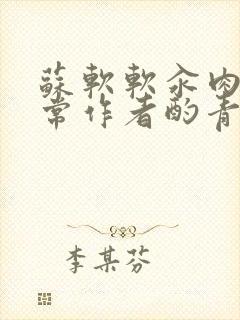 蘇軟軟汆肉
常作者酌青
李某芬